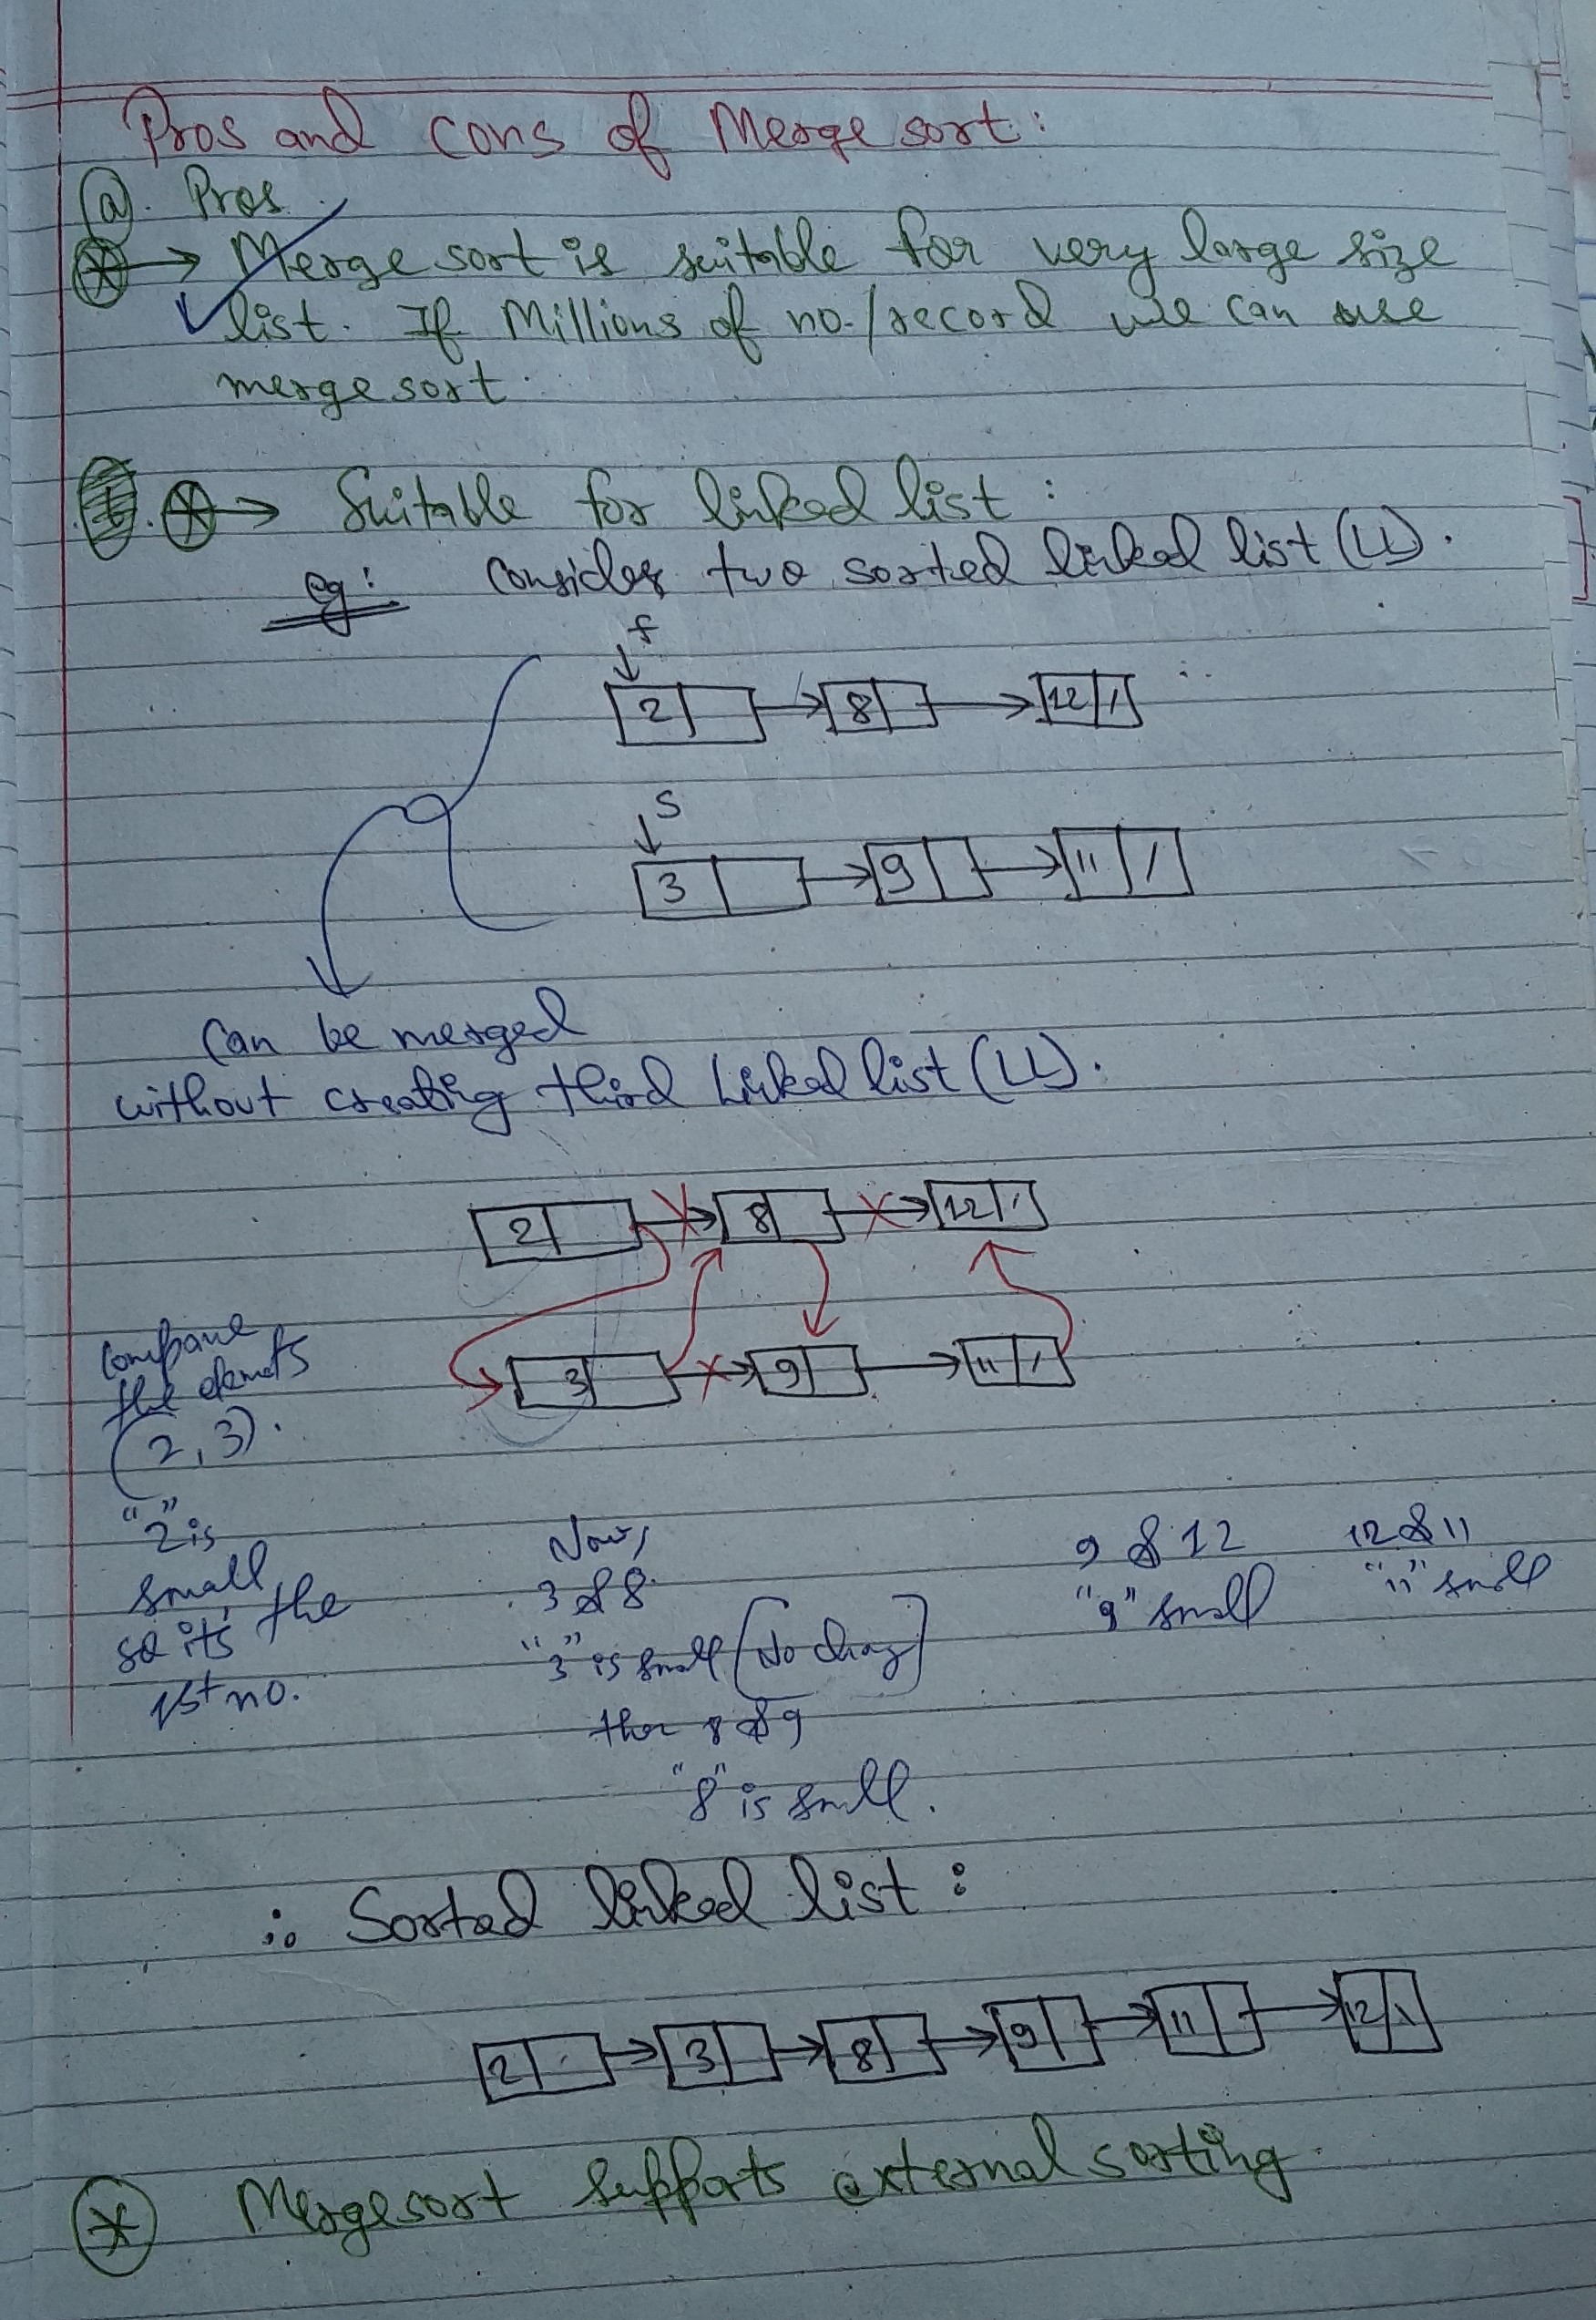 Pros and cons of Merge sort:
(a). Pros
→ Merge sort is suitable for very large size
list. If Millions of no./record we can use
merge sort.
→ Suitable for linked list:
eg: consider two sorted linked list (LL).
f
2 8 12
S
3 9 11
Can be merged
without creating third Linked list (LL).
2 8 12
3 9 11
Compare
the
(2,3).
"2" is
small,
so it's the
1st no.
Now,
3 & 8.
"3" is small
then 8 & 9
"8" is small.
9 & 12
"9" small
12 & 11
"11" small
∴ Sorted linked list:
2 3 8 9 11 12
* Mergesort supports external sorting.